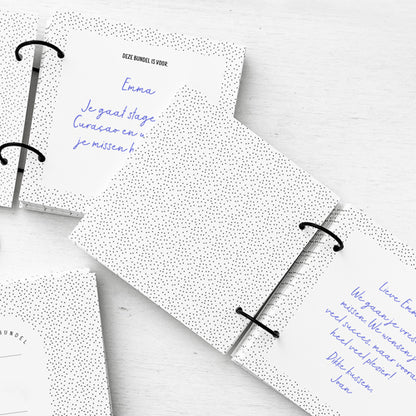 DEZE BUNDEL IS VOOR:
Emma
Je gaat stage
Curaçao en
je missen
Lieve Emma
We gaan je vres
missen. We wensen j
veel succes maar voora
heel veel plezier!
Dikke kussen,
Joan
BUNDEL